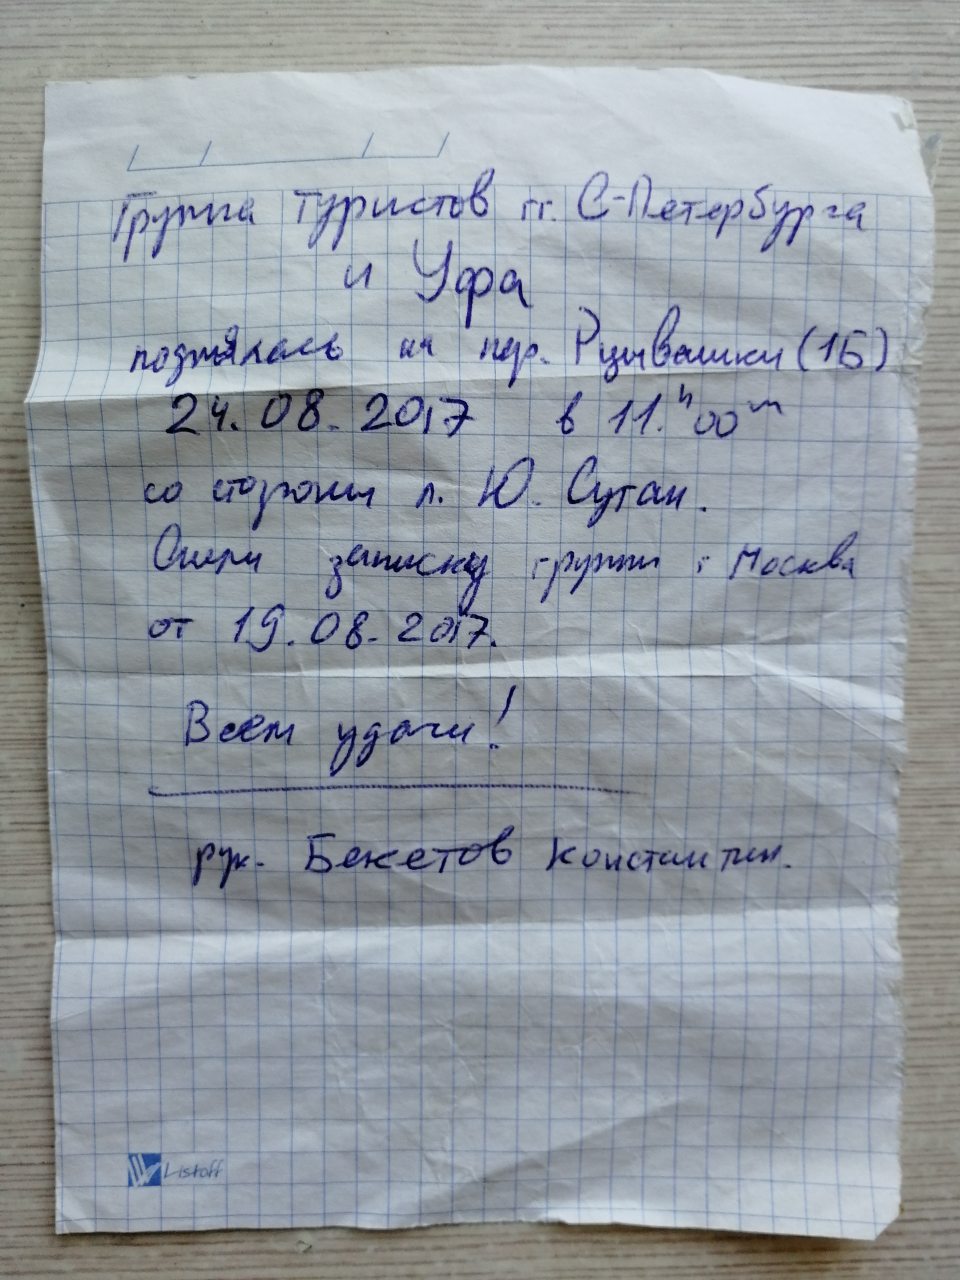 Группа туристов гг. С-Петербурга
и Уфа
поднялась на пер. Рцывашки (1Б)
24.08.2017 в 11.ч 00 м
со стороны л. Ю. Сугай.
Сняли записку группы г Москва
от 19.08.2017.
Всем удачи!
рук. Бекетов Константин.
Listoff